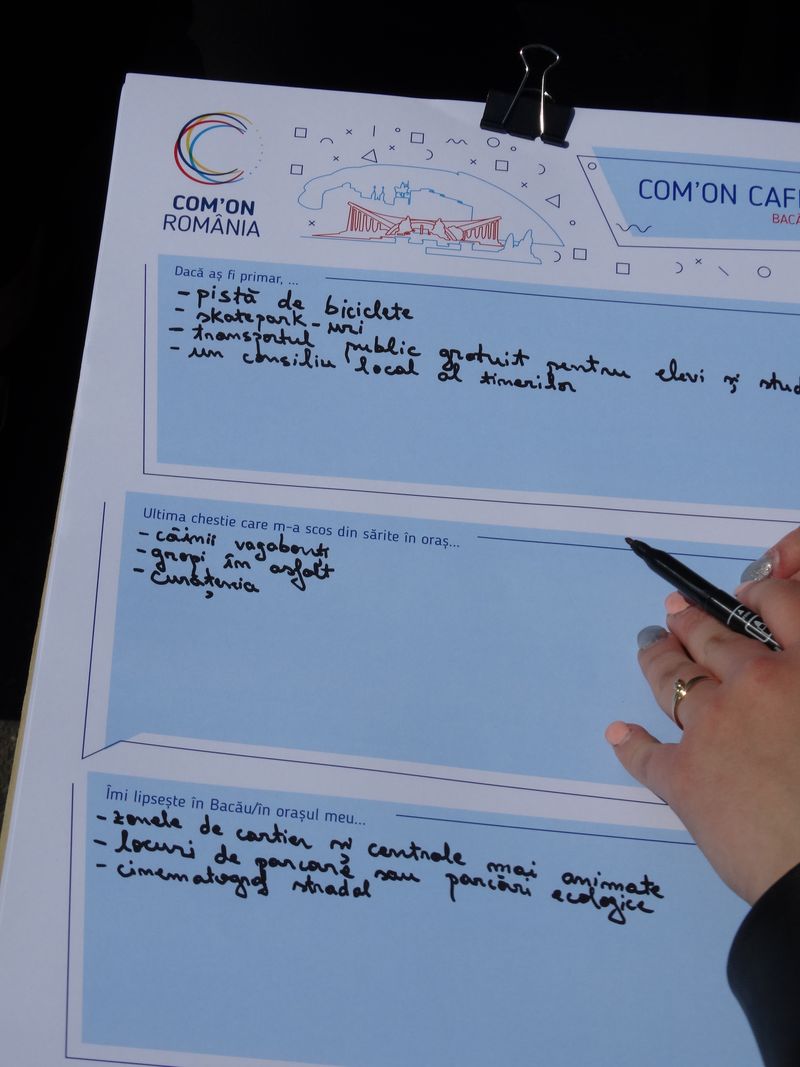 COM'ON
ROMÂNIA
COM'ON CAF
BAC
Dacă aș fi primar, ...
- pistă de biciclete
- skatepark-uri
- transportul public gratuit pentru elevi și stud
- un consiliu local al tinerilor
Ultima chestie care m-a scos din sărite în oraș...
- câinii vagabonți
- gropi în asfalt
- curățenia
Îmi lipsește în Bacău/în orașul meu...
- zonele de cartier și centrale mai animate
- locuri de parcare sau parcări ecologice
- cinematograf stradal